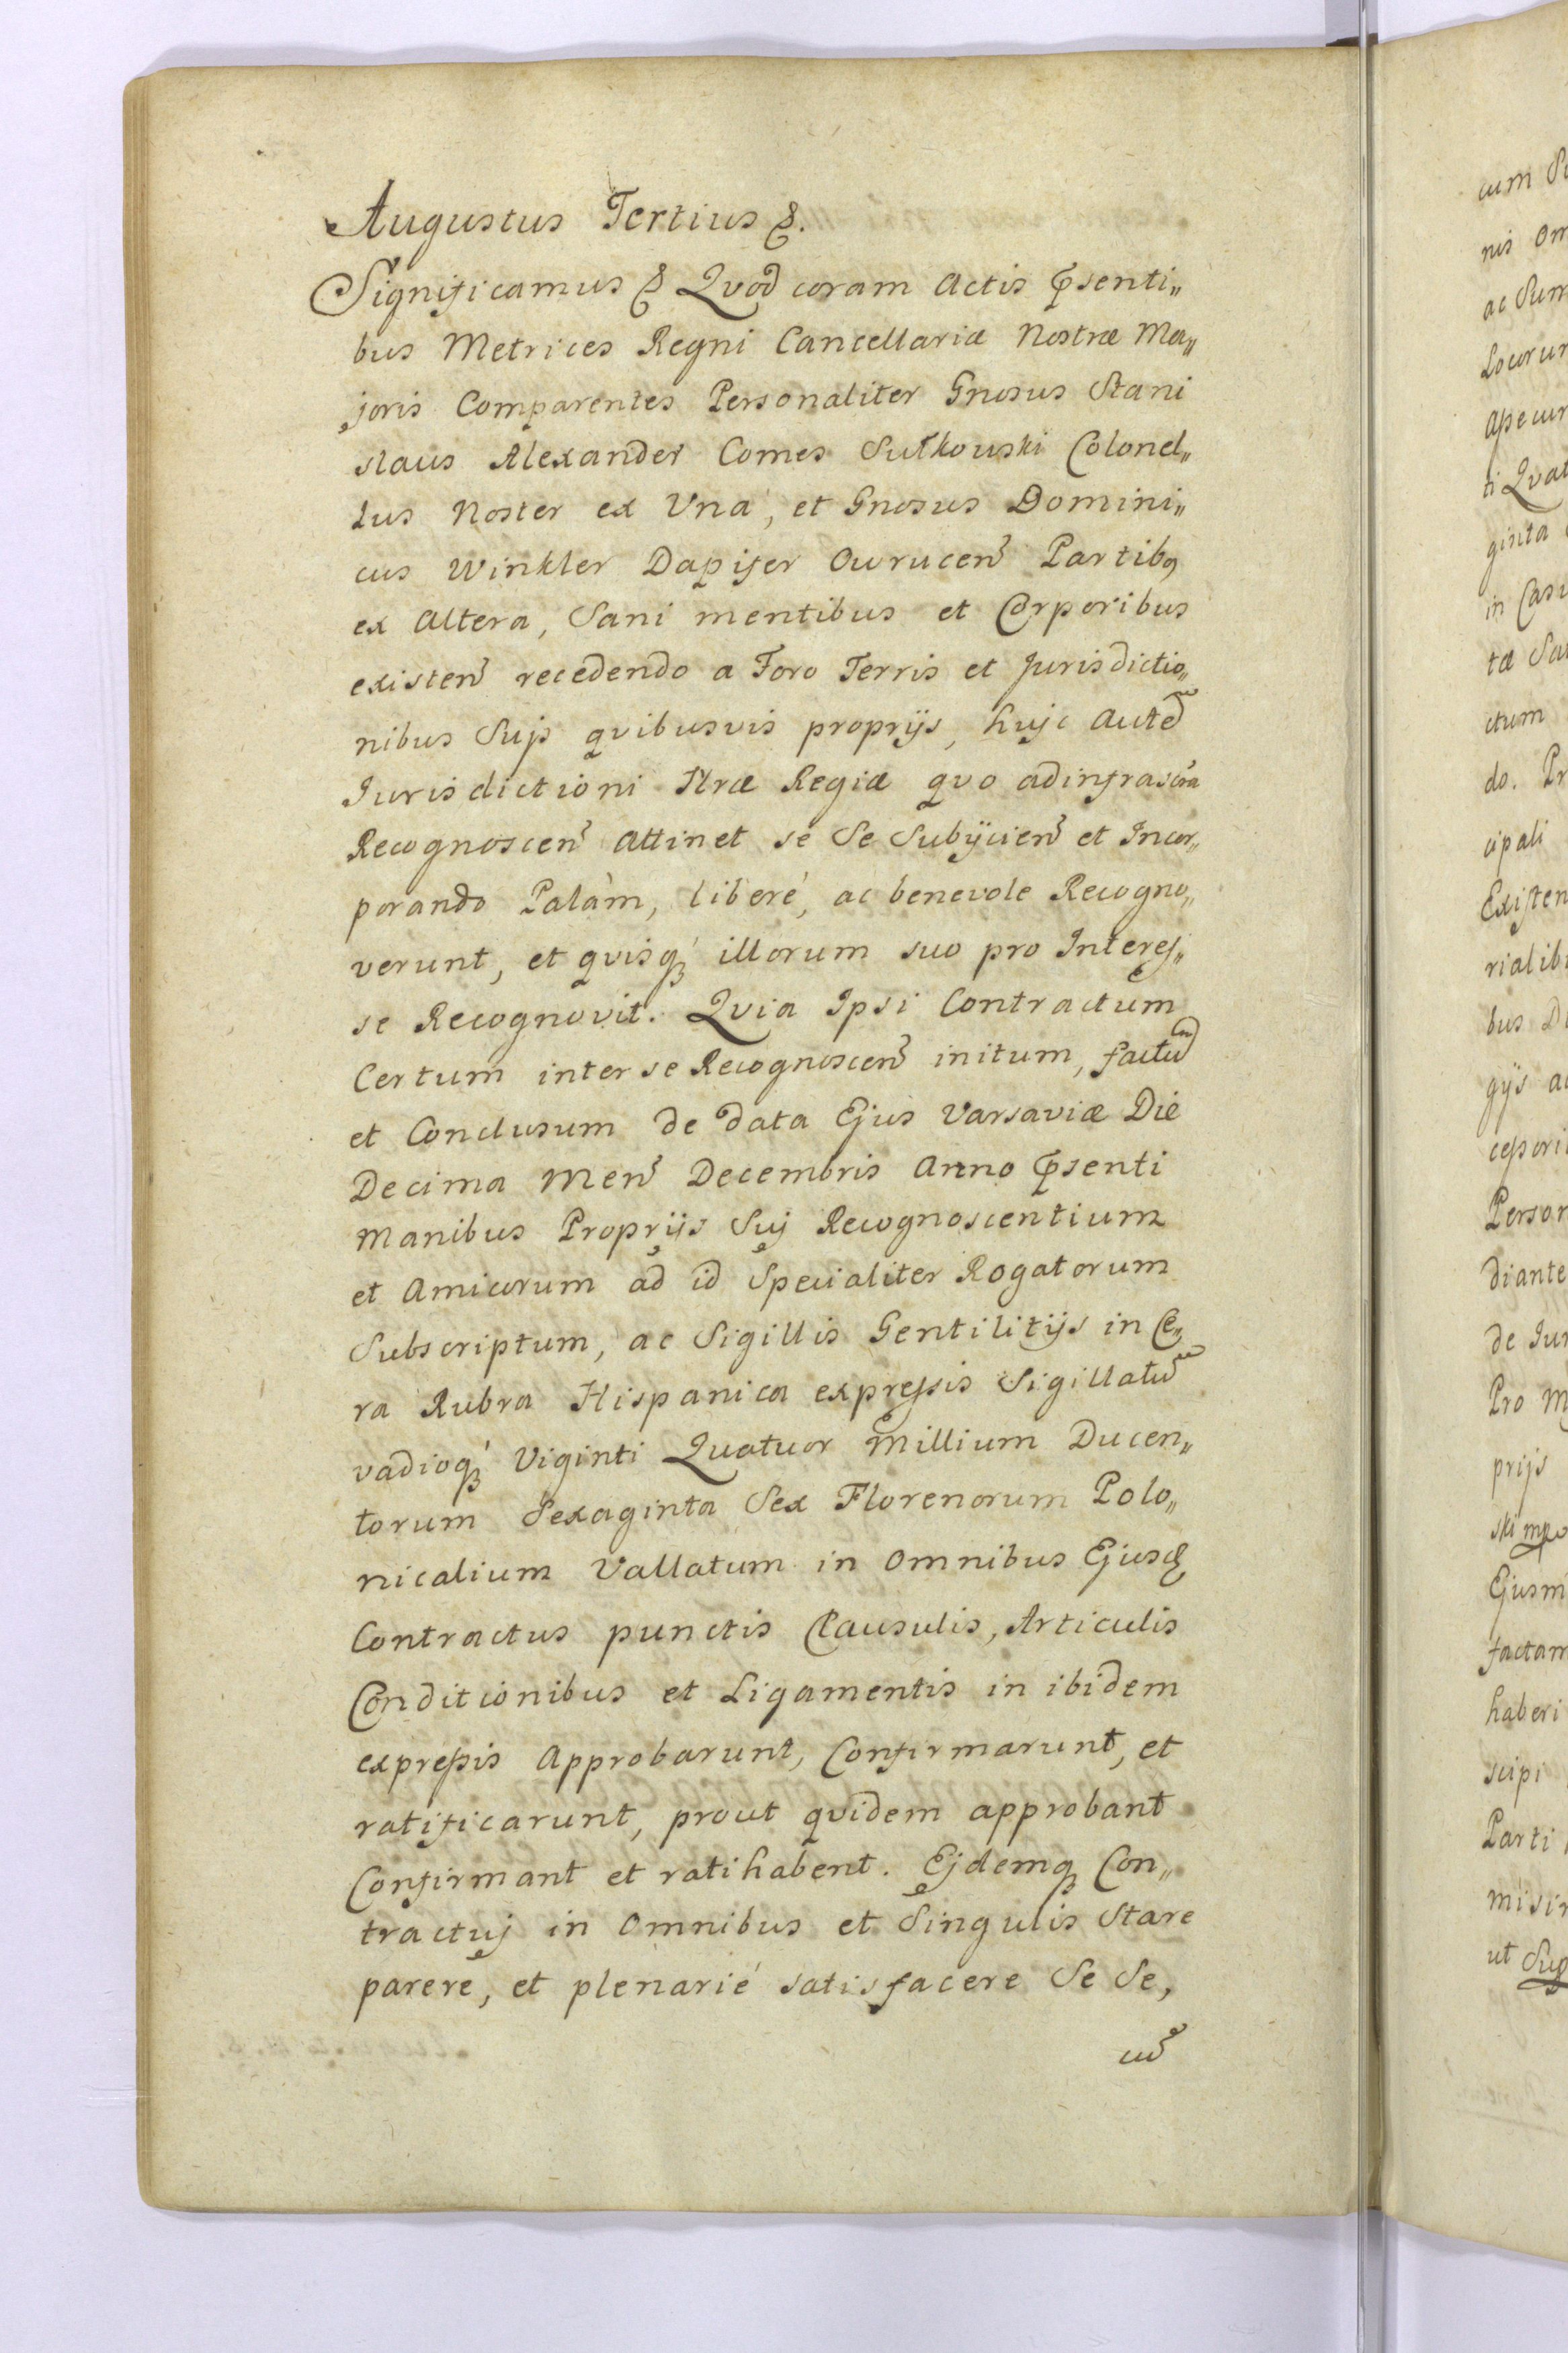 Augustus Tertius &.
Significamus & Qvod coram Actis p̄senti„
bus Metrices Regni Cancellariæ Nostræ Ma„
joris Comparentes Personaliter Gnosus Stani
slaus Alexander Comes Sułkowski Colonel„
lus Noster ex Vná, et Gnosus Domini„
cus Winkler Dapifer Owrucen̄ Partibꝯ
ex Altera, Sani mentibus et Corporibus
existen̄ recedendo a Foro Terris et Jurisdictio„
nibus Sujs qvibusvis proprijs, hujc Autē
Jurisdictioni Nræ Regiæ qvo ad infrascr̄a
Recognoscen̄ Attinet se Se Subijcien̄ et Incor„
porando Palàm, liberé, ac benevole Recogno„
verunt, et qvisqꝫ illorum suo pro Interes„
se Recognovit. Qvia Ipsi Contractum
Certum inter se Recognoscen̄ initum, factū
et Conclusum de data Ejus Varsaviæ Die
Decima Men̄ Decembris Anno p̄senti
Manibus Proprijs Suj Recognoscentium
et Amicorum ad id Specialiter Rogatorum
Subscriptum, ac Sigillis Gentilitijs in Ce„
ra Rubra Hispanica expressis Sigillatū
vadioqꝫ Viginti Quatuor Millium Ducen„
torum Sexaginta Sex Florenorum Polo„
nicalium Vallatum in Omnibus Ejusd̄
Contractus punctis Clausulis, Articulis
Conditionibus et Ligamentis in ibidem
expressis Approbarunt, Confirmarunt, et
ratificarunt, prout qvidem approbant
Confirmant et ratihabent. Ejdemqꝫ Con„
tractuj in Omnibus et Singulis Stare
parere, et plenarié satisfacere Se Se,
cū
cum
nis
ac
ginta
in
tæ
ctum
do.
cipali
bus
gijs
de
Pro
prijs
factam
haberi
Parti
ut